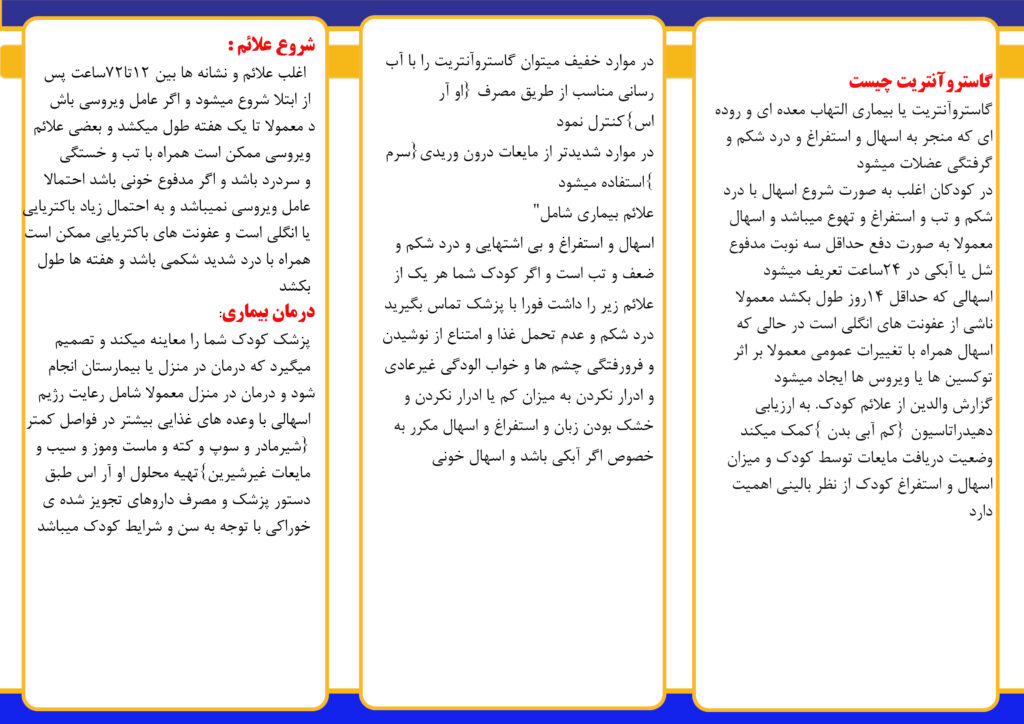 گاستروآنتریت چیست
گاستروآنتریت یا بیماری التهاب معده ای و روده
ای که منجر به اسهال و استفراغ و درد شکم و
گرفتگی عضلات میشود
در کودکان اغلب به صورت شروع اسهال با درد
شکم و تب و استفراغ و تهوع میباشد و اسهال
معمولا به صورت دفع حداقل سه نوبت مدفوع
شل یا آبکی در ۲۴ساعت تعریف میشود
اسهالی که حداقل ۱۴روز طول بکشد معمولا
ناشی از عفونت های انگلی است در حالی که
اسهال همراه با تغییرات عمومی معمولا بر اثر
توکسین ها یا ویروس ها ایجاد میشود
گزارش والدین از علائم کودک. به ارزیابی
دهیدراتاسیون {کم آبی بدن }کمک میکند
وضعیت دریافت مایعات توسط کودک و میزان
اسهال و استفراغ کودک از نظر بالینی اهمیت
دارد
در موارد خفیف میتوان گاستروآنتریت را با آب
رسانی مناسب از طریق مصرف {او آر
اس}کنترل نمود
در موارد شدیدتر از مایعات درون وریدی{سرم
}استفاده میشود
علائم بیماری شامل"
اسهال و استفراغ و بی اشتهایی و درد شکم و
ضعف و تب است و اگر کودک شما هر یک از
علائم زیر را داشت فورا با پزشک تماس بگیرید
درد شکم و عدم تحمل غذا و امتناع از نوشیدن
و فرورفتگی چشم ها و خواب الودگی غیرعادی
و ادرار نکردن به میزان کم یا ادرار نکردن و
خشک بودن زبان و استفراغ و اسهال مکرر به
خصوص اگر آبکی باشد و اسهال خونی
شروع علائم :
اغلب علائم و نشانه ها بین ۱۲تا۷۲ساعت پس
از ابتلا شروع میشود و اگر عامل ویروسی باش
د معمولا تا یک هفته طول میکشد و بعضی علائم
ویروسی ممکن است همراه با تب و خستگی
و سردرد باشد و اگر مدفوع خونی باشد احتمالا
عامل ویروسی نمیباشد و به احتمال زیاد باکتریایی
یا انگلی است و عفونت های باکتریایی ممکن است
همراه با درد شدید شکمی باشد و هفته ها طول
بکشد
درمان بیماری:
پزشک کودک شما را معاینه میکند و تصمیم
میگیرد که درمان در منزل یا بیمارستان انجام
شود و درمان در منزل معمولا شامل رعایت رژیم
اسهالی با وعده های غذایی بیشتر در فواصل کمتر
{شیرمادر و سوپ و کته و ماست وموز و سیب و
مایعات غیرشیرین}تهیه محلول او آر اس طبق
دستور پزشک و مصرف داروهای تجویز شده ی
خوراکی با توجه به سن و شرایط کودک میباشد